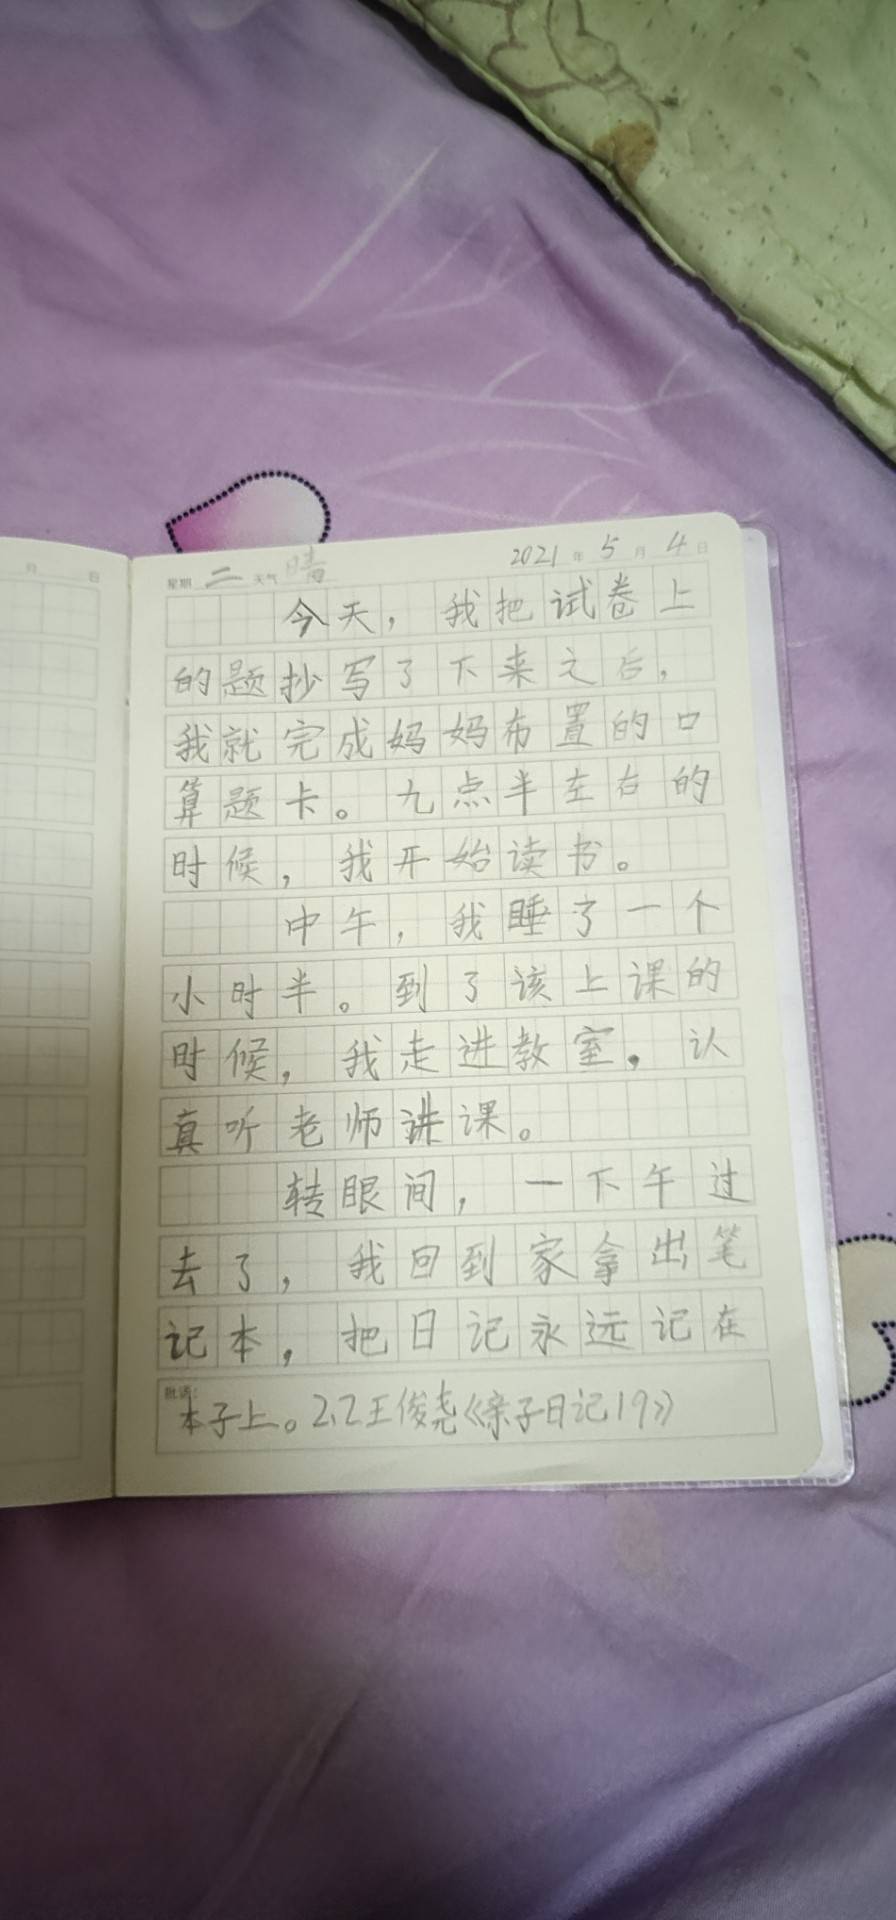 月 日
星期 二 天气 晴 2021年 5月 4日
今天，我把试卷上
的题抄写了下来之后，
我就完成妈妈布置的口
算题卡。九点半左右的
时候，我开始读书。
中午，我睡了一个
小时半。到了该上课的
时候，我走进教室，认
真听老师讲课。
转眼间，一下午过
去了，我回到家拿出笔
记本，把日记永远记在
批语：
本子上。2.2王俊尧《亲子日记19》